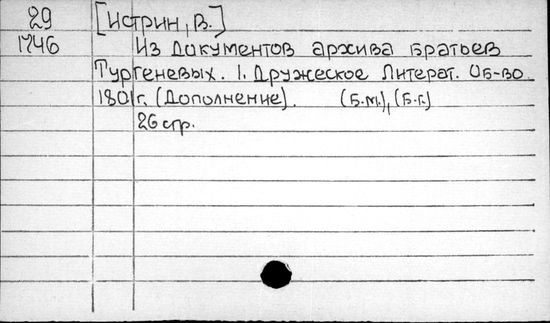 29 [Истрин, В.]
1746 Из документов архива братьев
Тургеневых. 1. Дружеское Литерат. Об-во
1801 г. (Дополнение). (Б.м.), (Б.г.)
26 стр.